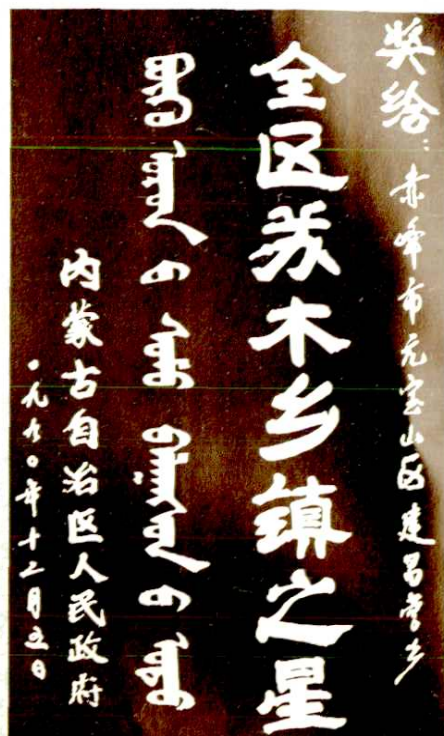 奖给：赤峰市元宝山区建昌营乡
全区苏木乡镇之星
内蒙古自治区人民政府
一九九〇年十二月五日